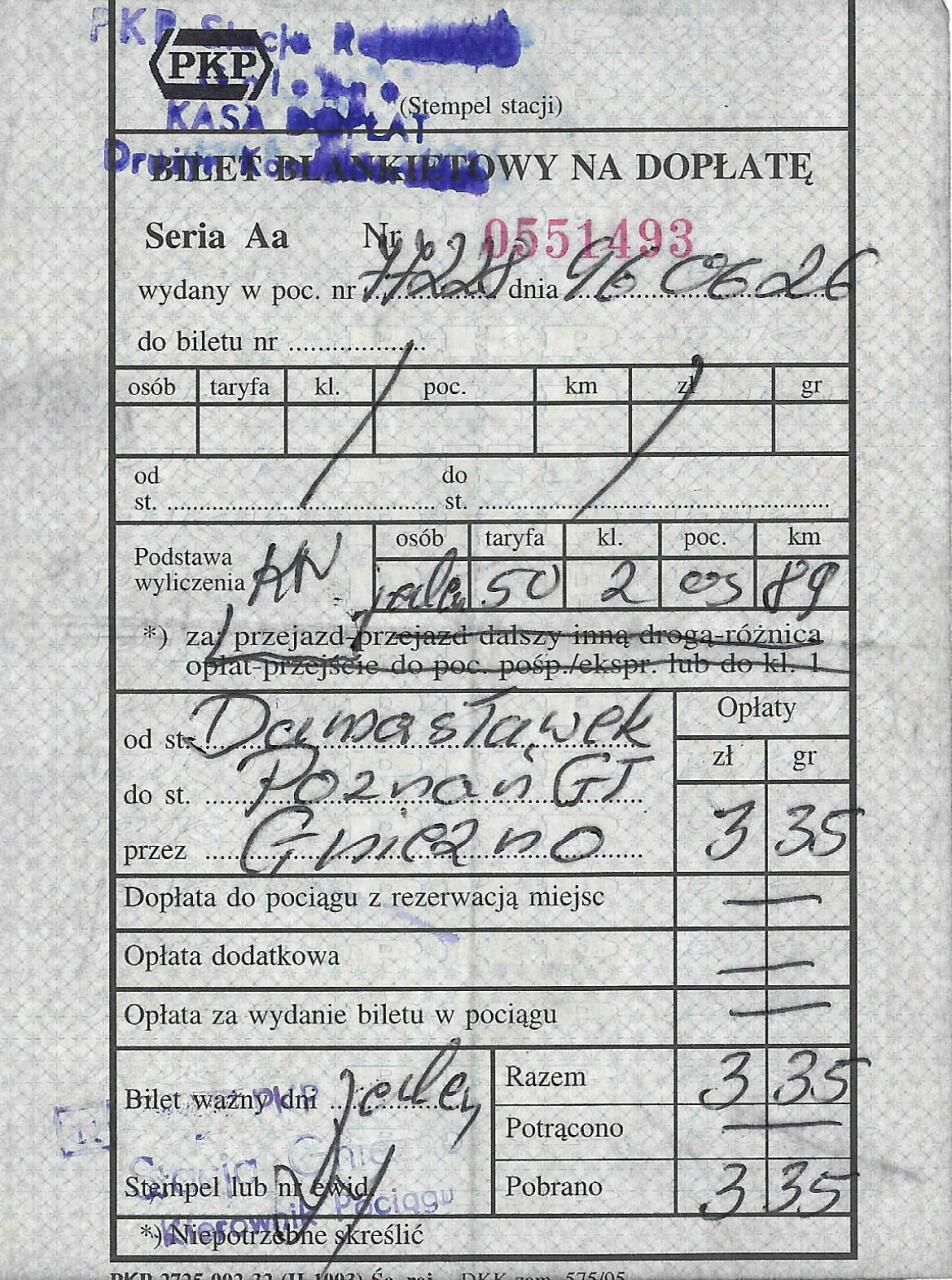 PKP Stacja
PKP
(Stempel stacji)
KASA DOPŁAT
BILET BLANKIETOWY NA DOPŁATĘ
Seria Aa Nr 0551493
wydany w poc. nr 77228 dnia 96 06 26
do biletu nr
osób taryfa kl. poc. km zł gr
od do
st. st.
osób taryfa kl. poc. km
Podstawa
wyliczenia AN jeden 50 2 os 89
*) za: przejazd-przejazd dalszy inną drogą-różnica
opłat-przejście do poc. pośp./ekspr. lub do kl. 1
Opłaty
od st. Damasławek
zł gr
do st. Poznań Gł
przez Gniezno 3 35
Dopłata do pociągu z rezerwacją miejsc —
Opłata dodatkowa —
Opłata za wydanie biletu w pociągu —
Razem 3 35
Bilet ważny dni jeden
PKP
Potrącono —
Stacja
Stempel lub nr ewid. Pobrano 3 35
Kierownik Pociągu
*) Niepotrzebne skreślić
PKP 2725-002-32 (II-1993) Śą. raj. DKK zam. 575/95